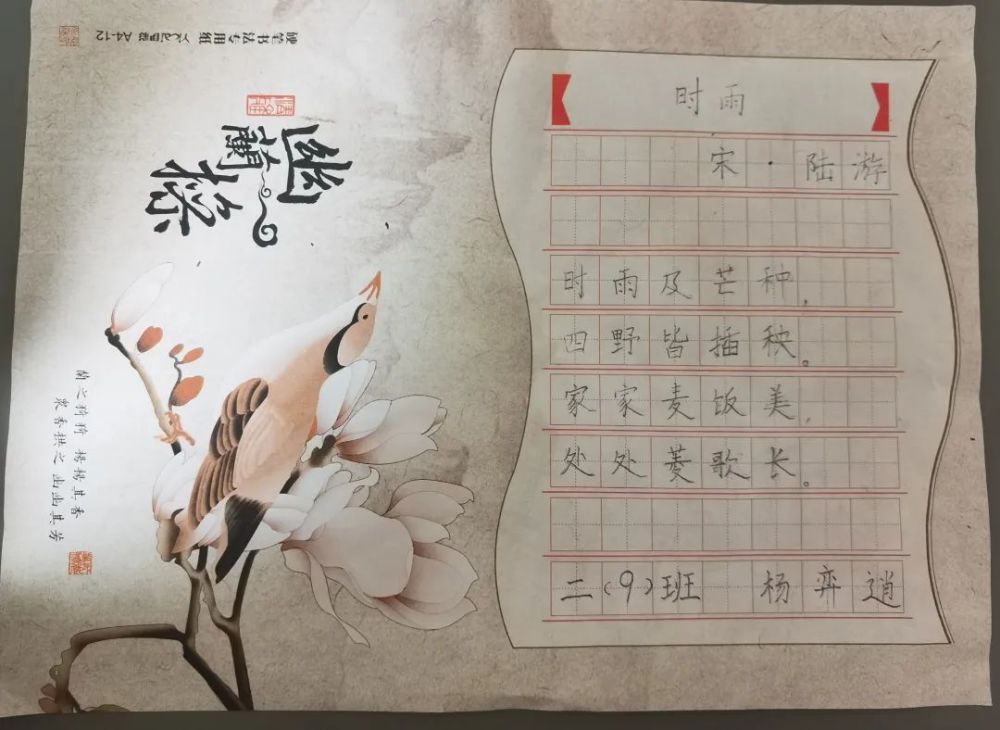 时雨
宋·陆游
时雨及芒种，
四野皆插秧。
家家麦饭美，
处处菱歌长。
二（9）班 杨弈逍
幽蘭操
蘭之猗猗 揚揚其香
眾香拱之 幽幽其芳
硬笔书法专用纸 A4-12